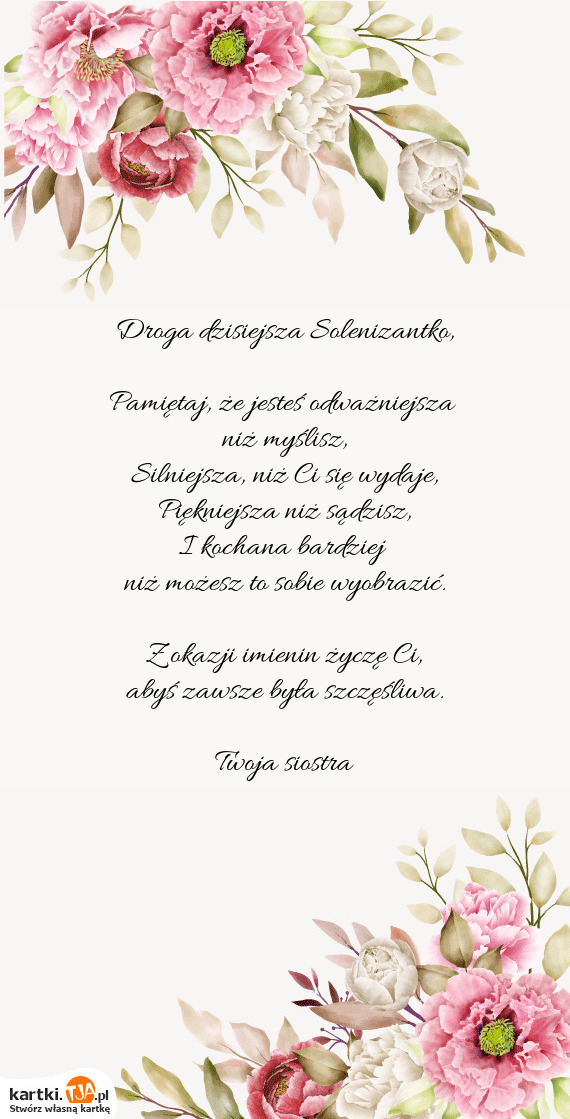 Droga dzisiejsza Solenizantko,
Pamiętaj, że jesteś odważniejsza
niż myślisz,
Silniejsza, niż Ci się wydaje,
Piękniejsza niż sądzisz,
I kochana bardziej
niż możesz to sobie wyobrazić.
Z okazji imienin życzę Ci,
abyś zawsze była szczęśliwa.
Twoja siostra
kartki.TJA.pl
Stwórz własną kartkę